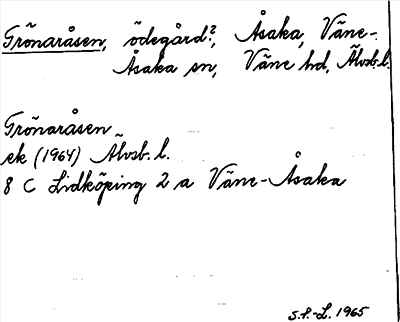 Grönaråsen, ödegård?, Åsaka, Väne-
Åsaka sn, Väne hd, Älvsb. l.
Grönaråsen
ek (1964) Älvsb. l.
8 C Lidköping 2 a Väne-Åsaka
S.F.-L. 1965